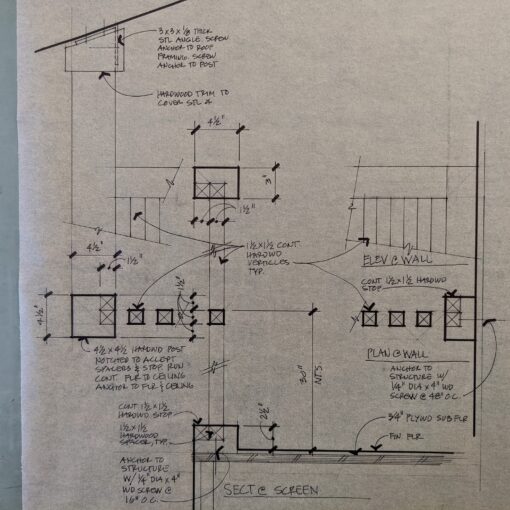 3 x 3 x 1/8 THICK
STL ANGLE. SCREW
ANCHOR TO ROOF
FRAMING. SCREW
ANCHOR TO POST
HARDWOOD TRIM TO
COVER STL
4 1/2"
3"
1 1/2"
4 1/2"
1 1/2"
1 1/2 x 1 1/2 CONT.
HARDWD
VERTICLES
TYP.
ELEV @ WALL
CONT 1 1/2 x 1 1/2 HARDWD
STOP
1 1/2"
4 1/2"
4 1/2 x 4 1/2 HARDWD POST
NOTCHED TO ACCEPT
SPACERS & STOP. RUN
CONT. FLR TO CEILING
ANCHOR TO FLR & CEILING
PLAN @ WALL
ANCHOR TO
STRUCTURE W/
1/4" DIA x 4" WD
SCREW @ 48" O.C.
30"
NTS.
CONT 1 1/2 x 1 1/2
HARDWD STOP
1 1/2 x 1 1/2
HARDWOOD
SPACER, TYP.
2 1/2"
3/4" PLYWD SUBFLR
FIN. FLR
ANCHOR TO
STRUCTURE
W/ 1/4" DIA x 4"
WD SCREW @
16" O.C.
SECT @ SCREEN